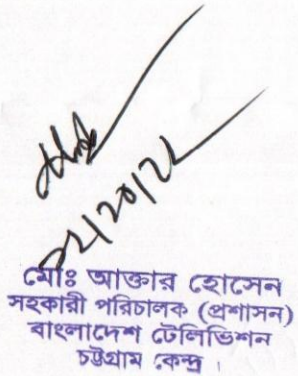 মোঃ আক্তার হোসেন
সহকারী পরিচালক (প্রশাসন)
বাংলাদেশ টেলিভিশন
চট্টগ্রাম কেন্দ্র।